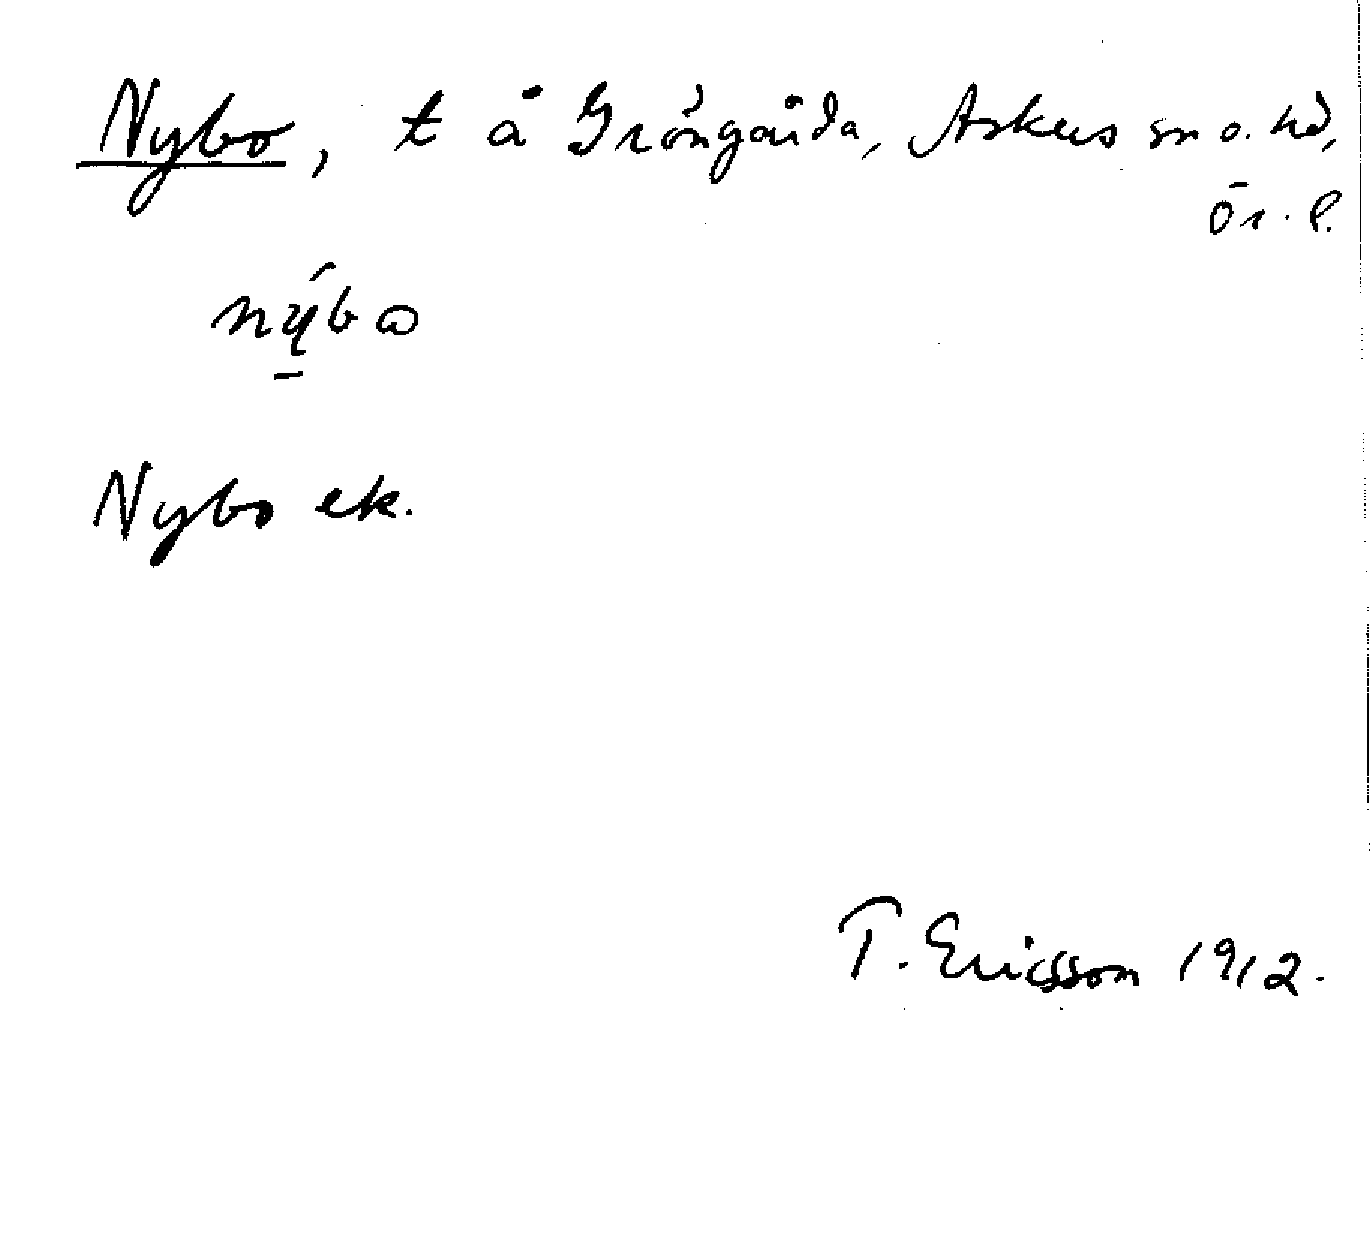 Nybo, t å Gröngärda, Askers sn o. hd,
Ör. l.
nýbω
Nybo ek.
T. Ericsson 1912.